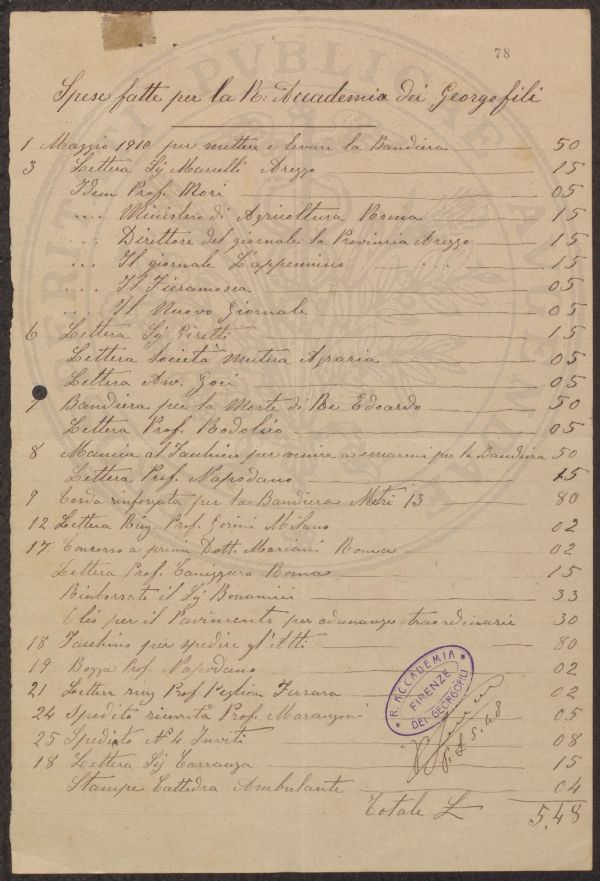 78
Spese fatte per la R: Accademia dei Georgofili
1 Maggio 1910 per mettere e levare la Bandiera 50
3 Lettera Sij Marcelli Arezzo 15
Idem Prof. Mori 05
.... Ministero di Agricoltura Roma 15
... Direttore del giornale la Provincia Arezzo 15
... Il giornale L'appennino ... 15
.... Il Fieramosca 05
... Il Nuovo Giornale 05
6 Lettera Sij Peretti 15
Lettera Società Mutua Agraria 05
Lettera Avv. Gori 05
7 Bandiera per la Morte di Re Edoardo 50
Lettera Prof. Rodolico 05
8 Mancia al Facchino per venire a cercarmi per la Bandiera 50
Lettera Prof. Napodano 15
9 Corda rinforzata per la Bandiera Metri 13 80
12 Lettera Ring. Prof. Gorini Milano 02
17 Concorso a premi Dott. Mariani Roma 02
Lettera Prof. Canizzaro Roma 15
Rimborsato il Sij Bonamici 33
Olio per il Pavimento per adunanza straordinaria 30
18 Facchino per spedire gl'Atti 80
19 Bozza Prof. Napodano 02
21 Lettera ring Prof Peglion Ferrara 02
24 Spedito ricevuta Prof. Marangoni 05
25 Spedito N° 4 Inviti 08
18 Lettera Sij Carranza 15
Stampe Cattedra Ambulante 04
Totale £ 5,48
R. ACCADEMIA
FIRENZE
DEI GEORGOFILI
£ 5.48